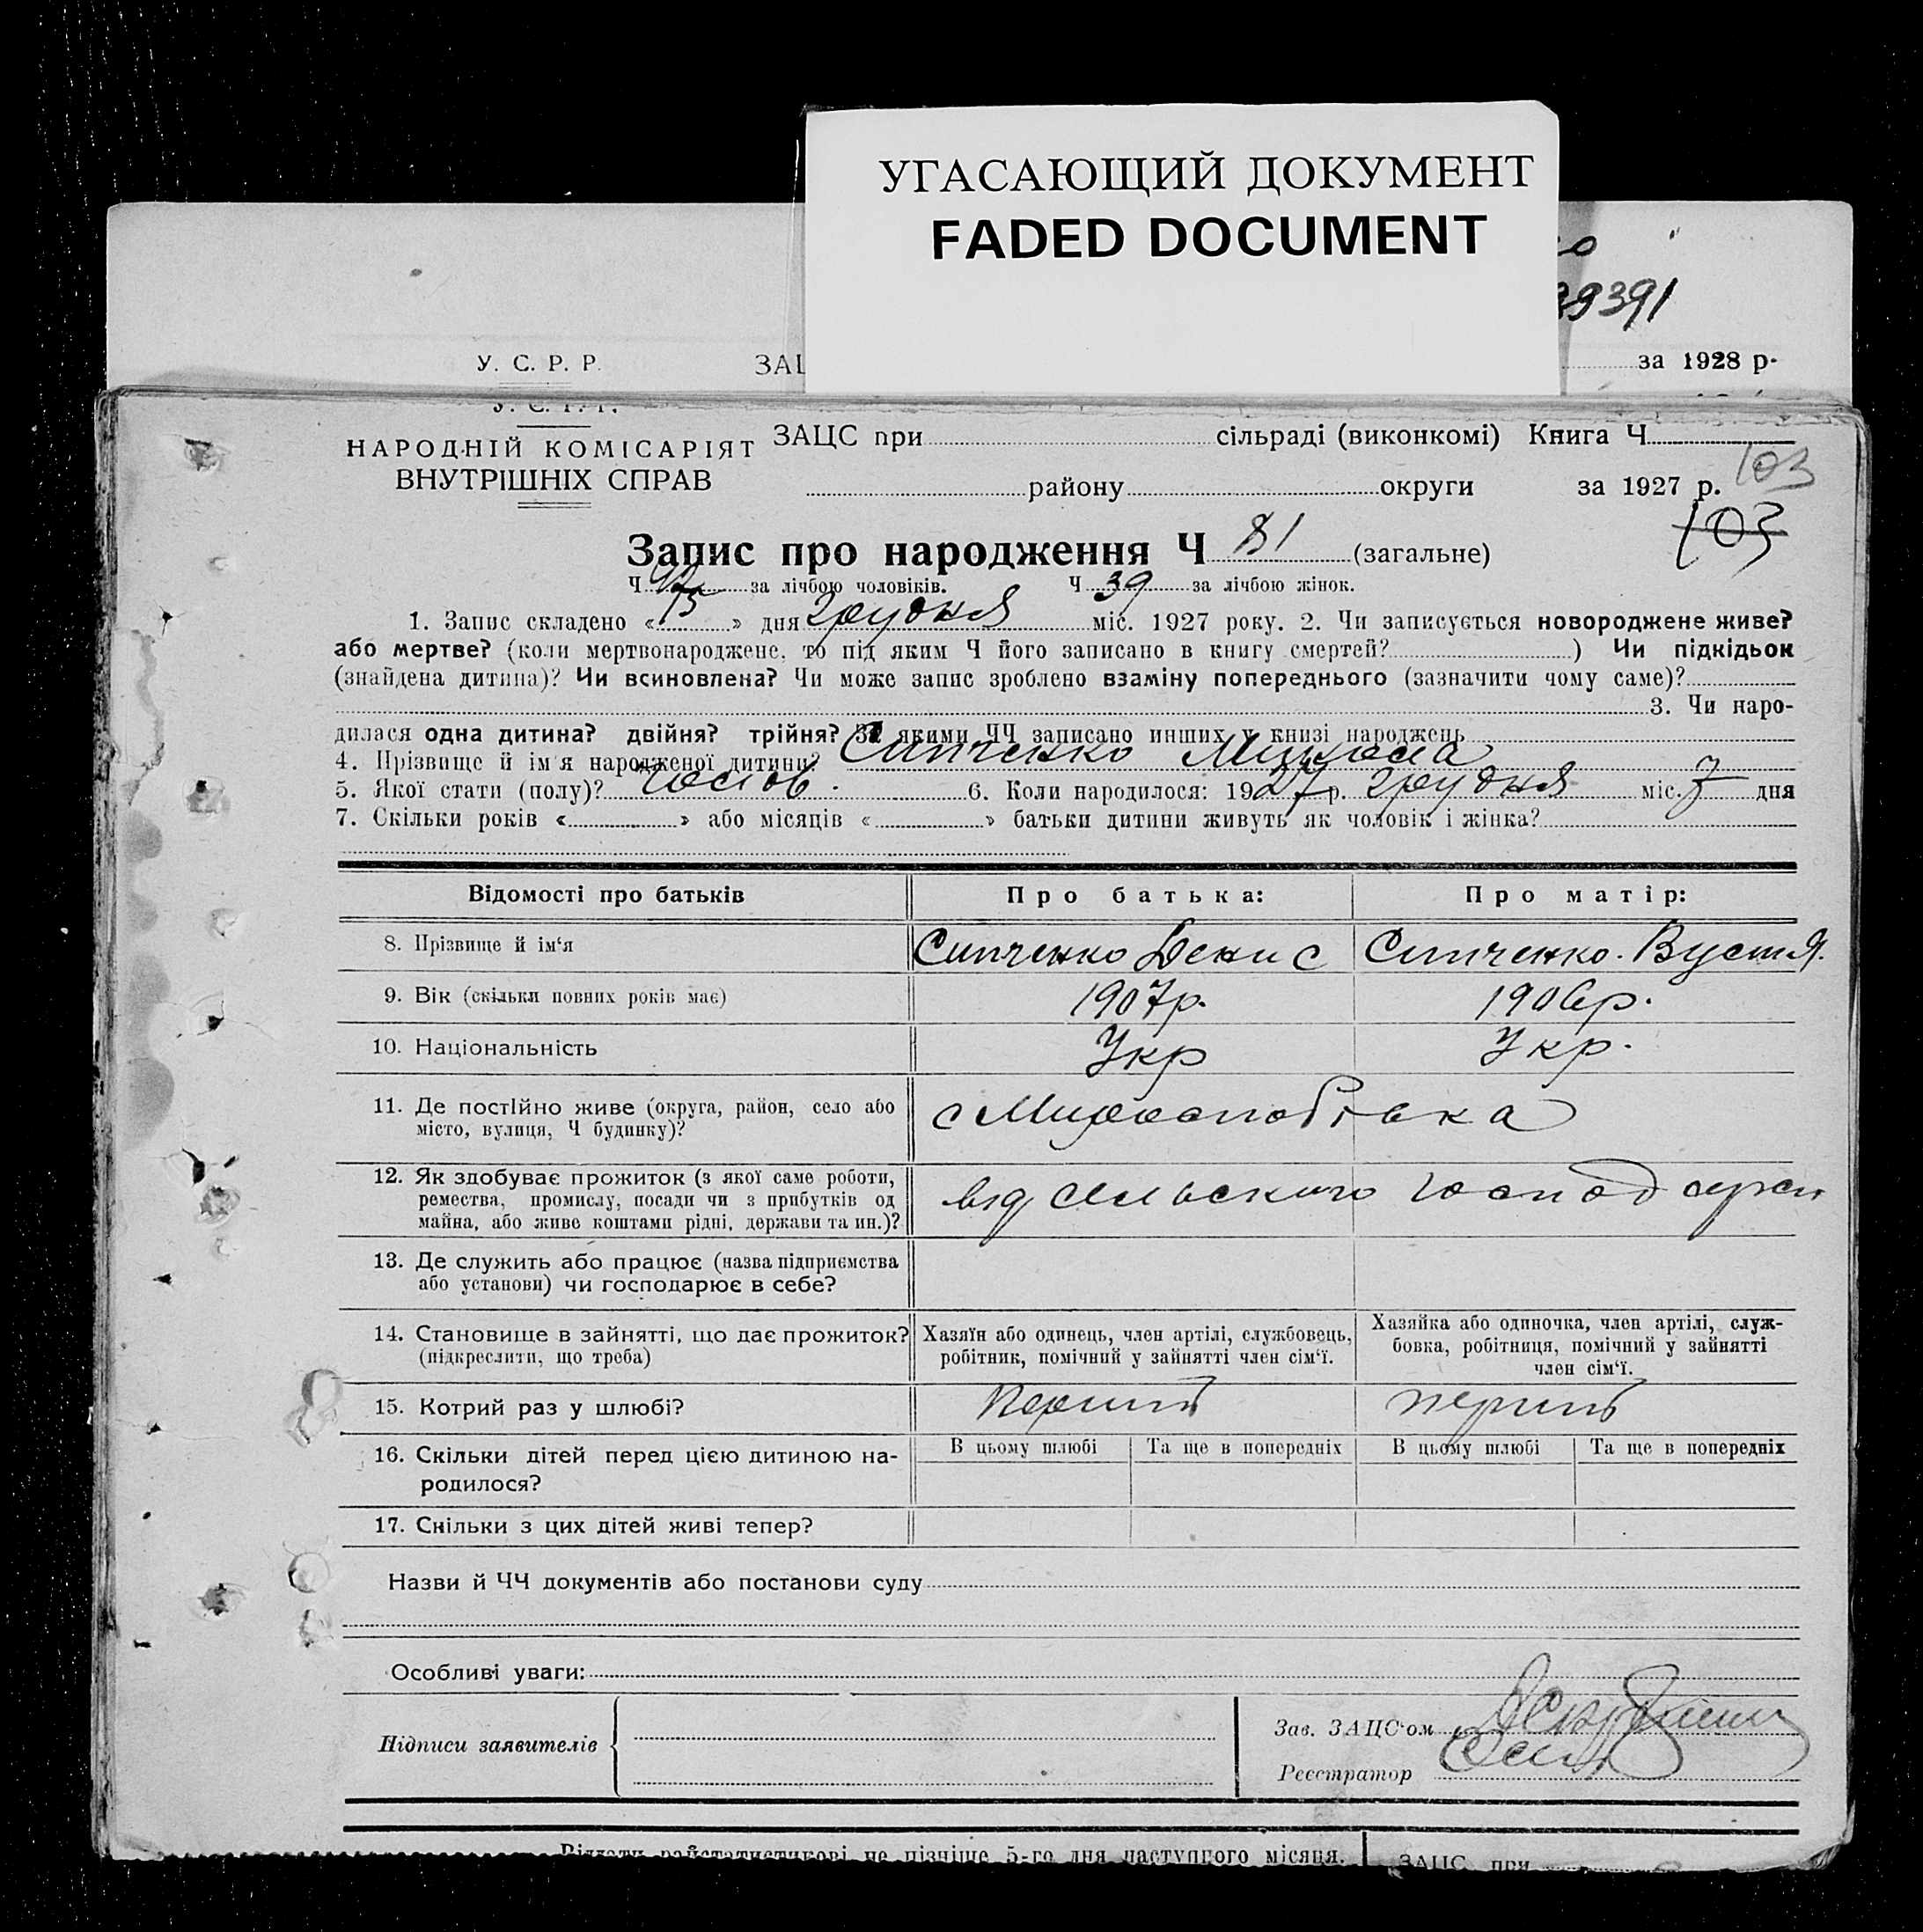 УГАСАЮЩИЙ ДОКУМЕНТ
FADED DOCUMENT
39391
У. С. Р. Р. за 1928 р.
У. С. Р. Р.
НАРОДНІЙ КОМІСАРІЯТ
ВНУТРІШНІХ СПРАВ
ЗАЦС при сільраді (виконкомі) Книга Ч.
району округи за 1927 р. 103
103
Запис про народження Ч 81 (загальне)
Ч 42 за лічбою чоловіків. Ч 39 за лічбою жінок.
1. Запис складено «15» дня грудня міс. 1927 року. 2. Чи записується новороджене живе?
або мертве? (коли мертвонароджене, то під яким Ч його записано в книгу смертей? ) Чи підкідьок
(знайдена дитина)? Чи всиновлена? Чи може запис зроблено взаміну попереднього (зазначити чому саме)?
3. Чи наро-
дилася одна дитина? двійня? трійня? За якими ЧЧ записано инших у книзі народжень
4. Прізвище й ім'я народженої дитини? Сипченко Микола
5. Якої стати (полу)? чолов. 6. Коли народилося: 1927 р. грудня міс. 7 дня
7. Скільки років « » або місяців « » батьки дитини живуть як чоловік і жінка?
Відомості про батьків Про батька: Про матір:
8. Прізвище й ім‘я Сипченко Денис Сипченко. Вустя.
9. Вік (скільки повних років має) 1907р. 1906р.
10. Національність Укр Укр.
11. Де постійно живе (округа, район, село або
місто, вулиця, Ч будинку)?
с
12. Як здобуває прожиток (з якої саме роботи,
ремества, промислу, посади чи з прибутків од
майна, або живе коштами рідні, держави та ин.)?
від сільского господарсв
13. Де служить або працює (назва підприємства
або установи) чи господарює в себе?
14. Становище в зайнятті, що дає прожиток?
(підкреслити, що треба)
Хазяїн або одинець, член артілі, службовець,
робітник, помічний у зайнятті член сім‘ї.
Хазяйка або одиночка, член артілі, служ-
бовка, робітниця, помічний у зайнятті
член сім‘ї.
15. Котрий раз у шлюбі?
16. Скільки дітей перед цією дитиною на-
родилося?
В цьому шлюбі Та ще в попередніх В цьому шлюбі Та ще в попередніх
17. Скільки з цих дітей живі тепер?
Назви й ЧЧ документів або постанови суду
Особливі уваги:
Підписи заявителів
Зав. ЗАЦС‘ом
Реєстратор
Віддати райстатистикові не пізніше 5-го дня наступного місяця. ЗАЦС при